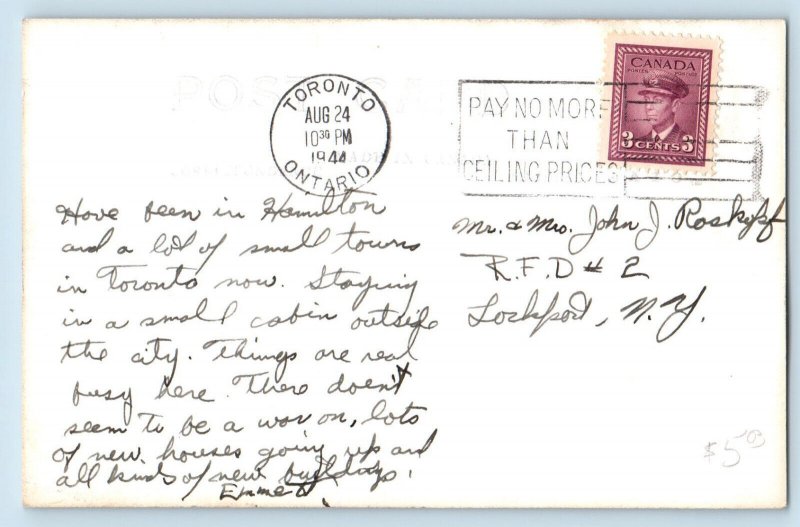 POST CARD
TORONTO
AUG 24
10 30 PM
1944
ONTARIO
PAY NO MORE
THAN
CEILING PRICES
CANADA
POSTES POSTAGE
3 CENTS 3
Have been in Hamilton
and a lot of small towns
in Toronto now. Staying
in a small cabin outside
the city. Things are real
busy here. There doen't
seem to be a war on, lots
of new houses going up and
all kinds of new buildings.
Emmet
Mr. & Mrs. John J. Roskopf
R.F.D # 2
Lockport, N.Y.
$5.00